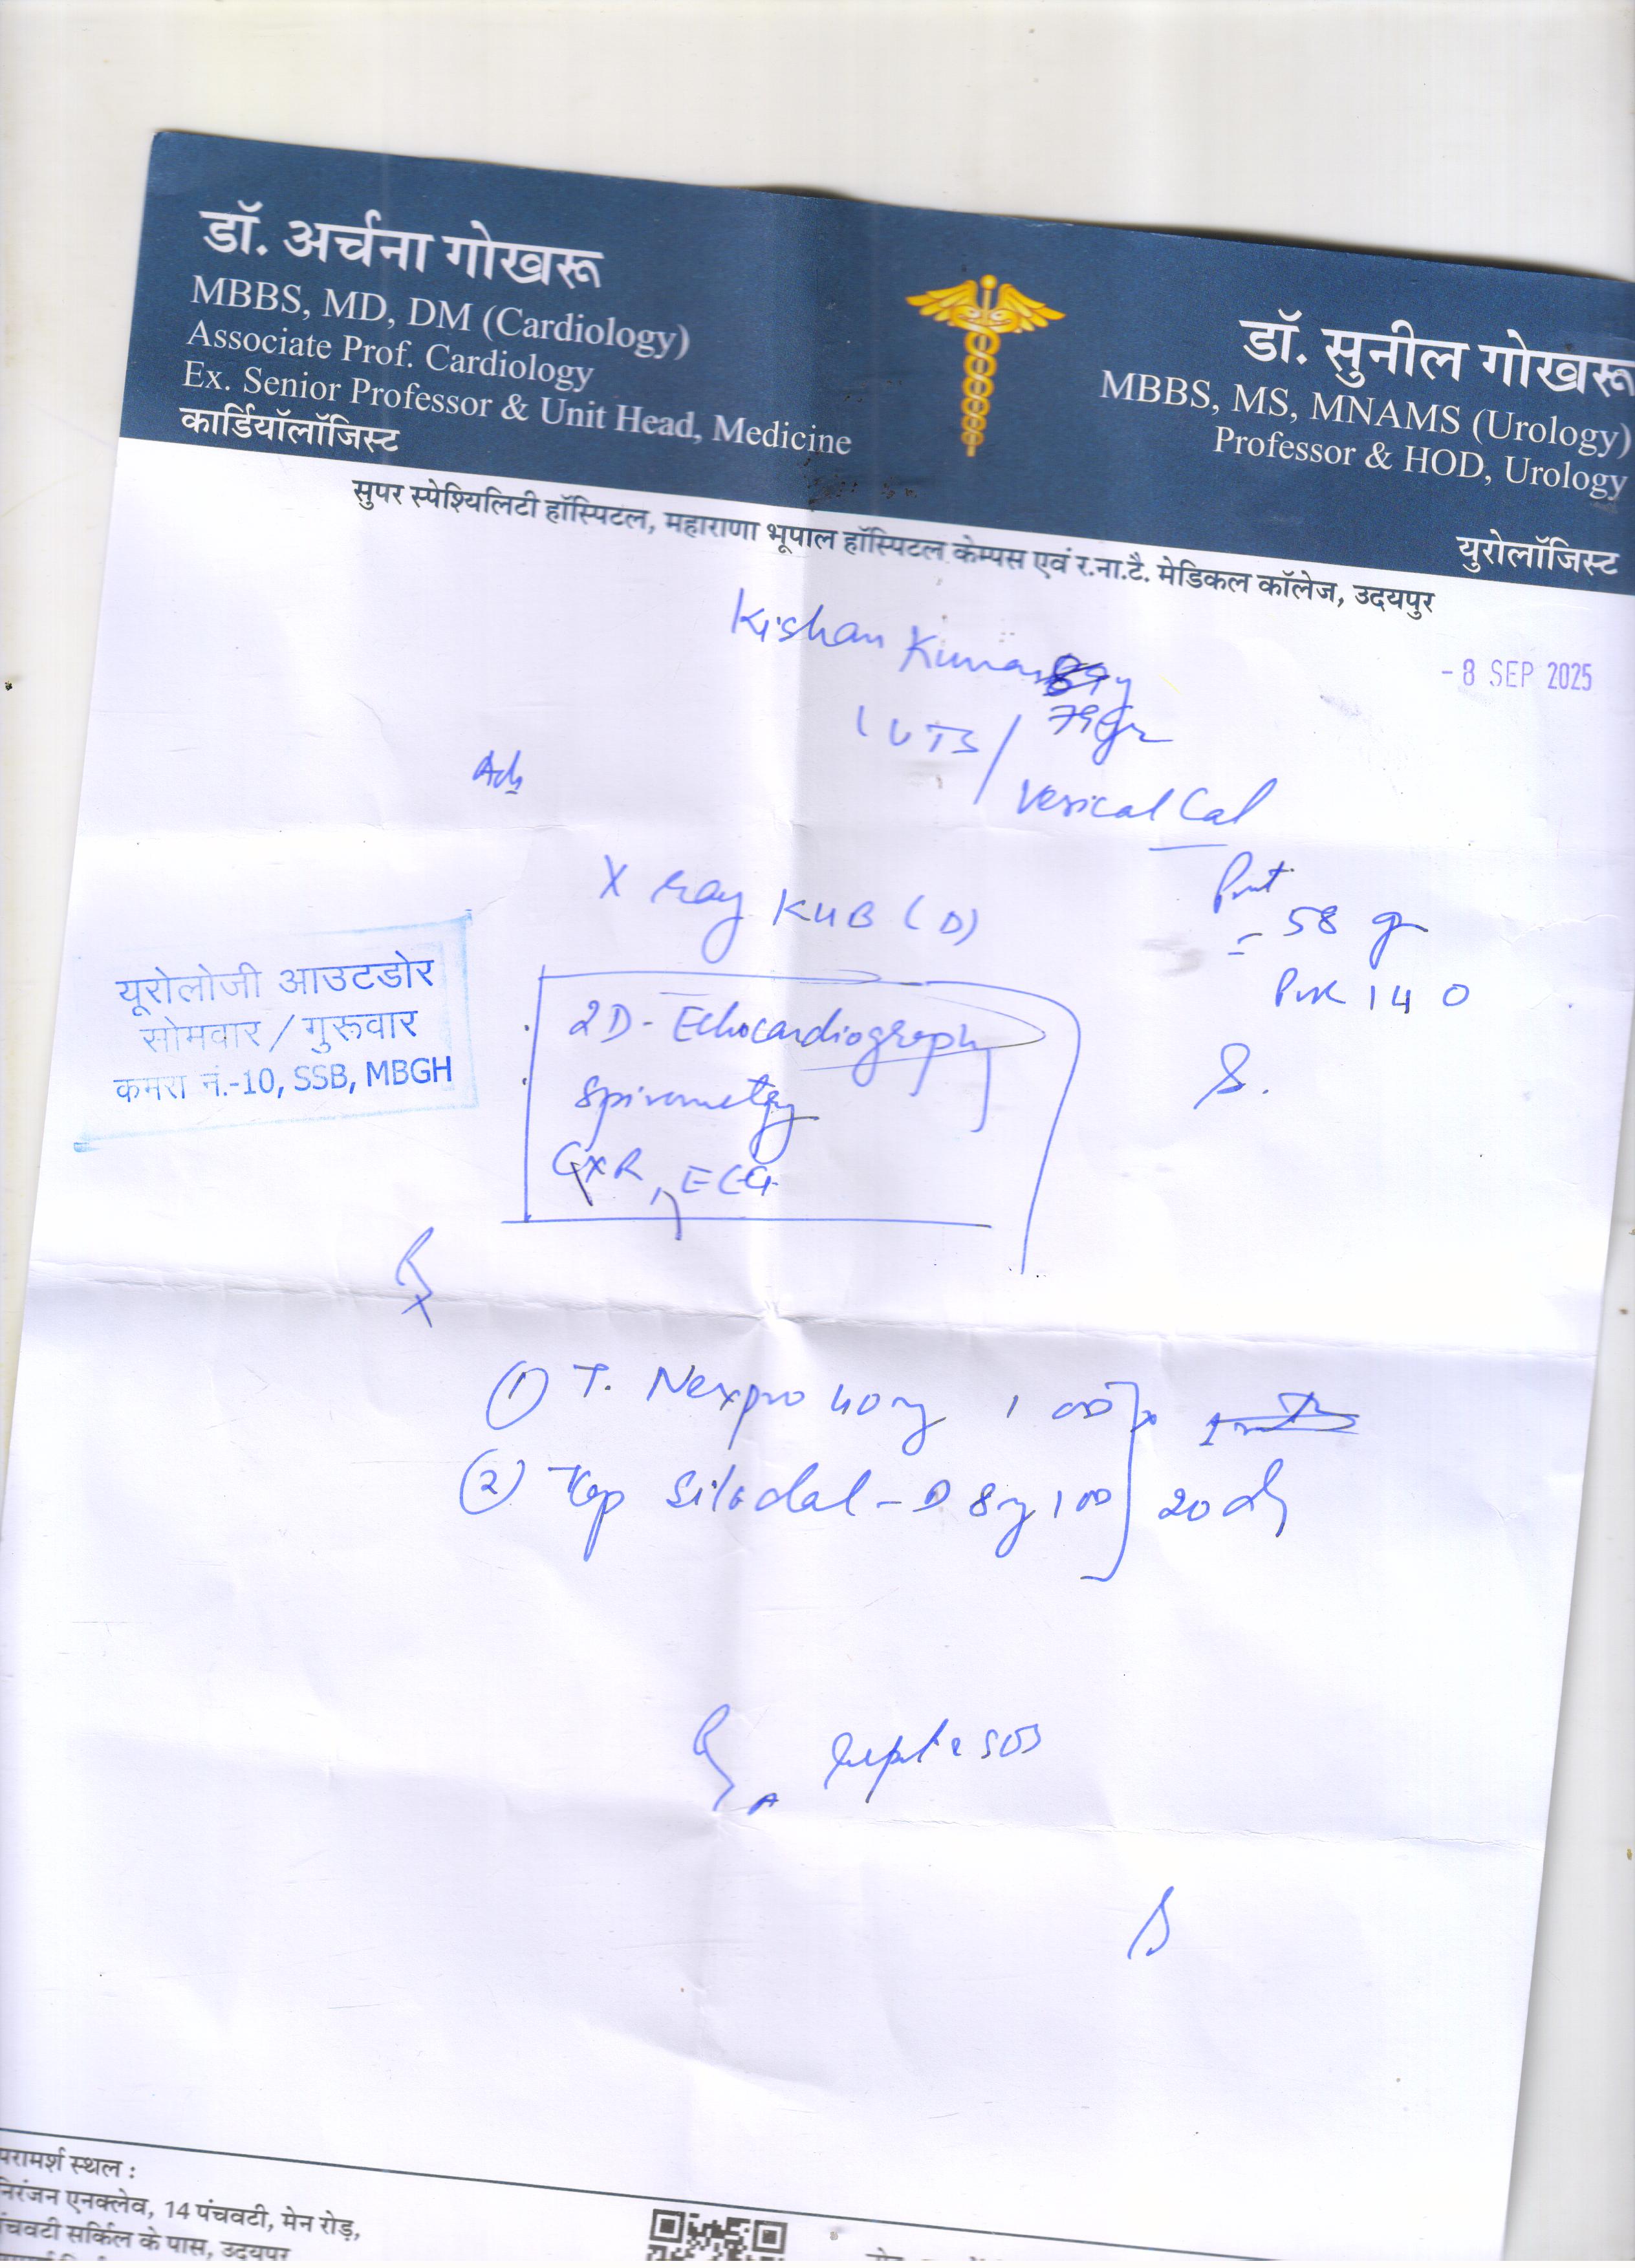 डॉ. अर्चना गोखरू
MBBS, MD, DM (Cardiology)
Associate Prof. Cardiology
Ex. Senior Professor & Unit Head, Medicine
कार्डियॉलॉजिस्ट
डॉ. सुनील गोखरू
MBBS, MS, MNAMS (Urology)
Professor & HOD, Urology
युरोलॉजिस्ट
सुपर स्पेश्यिलिटी हॉस्पिटल, महाराणा भूपाल हॉस्पिटल केम्पस एवं र.ना.टै. मेडिकल कॉलेज, उदयपुर
- 8 SEP 2025
Kishan Kumar
79 yr
LUTS / Vesical Cal
Adv
X ray KUB (D)
58 gr
PVR 140
यूरोलोजी आउटडोर
सोमवार / गुरूवार
कमरा नं.-10, SSB, MBGH
2D-Echocardiography
Spirometry
CXR, ECG
Rx
① T. Nexpro 40 mg 1 OD
② Cap Silodal-D 8 mg 1 OD 20 d
SOS
परामर्श स्थल :
निरंजन एनक्लेव, 14 पंचवटी, मेन रोड़,
पंचवटी सर्किल के पास, उदयपुर